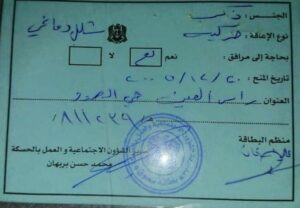 الجنس : ذكر
نوع الإعاقة: حركية شلل دماغي
بحاجة إلى مرافق : نعم لا
تاريخ المنح : ٢٠٠٥/١٢/٢٠
العنوان : راس العين حي
٨١١٢٣٩
منظم البطاقة
مدير الشؤون الاجتماعية و العمل بالحسكة
محمد حسن بريهان